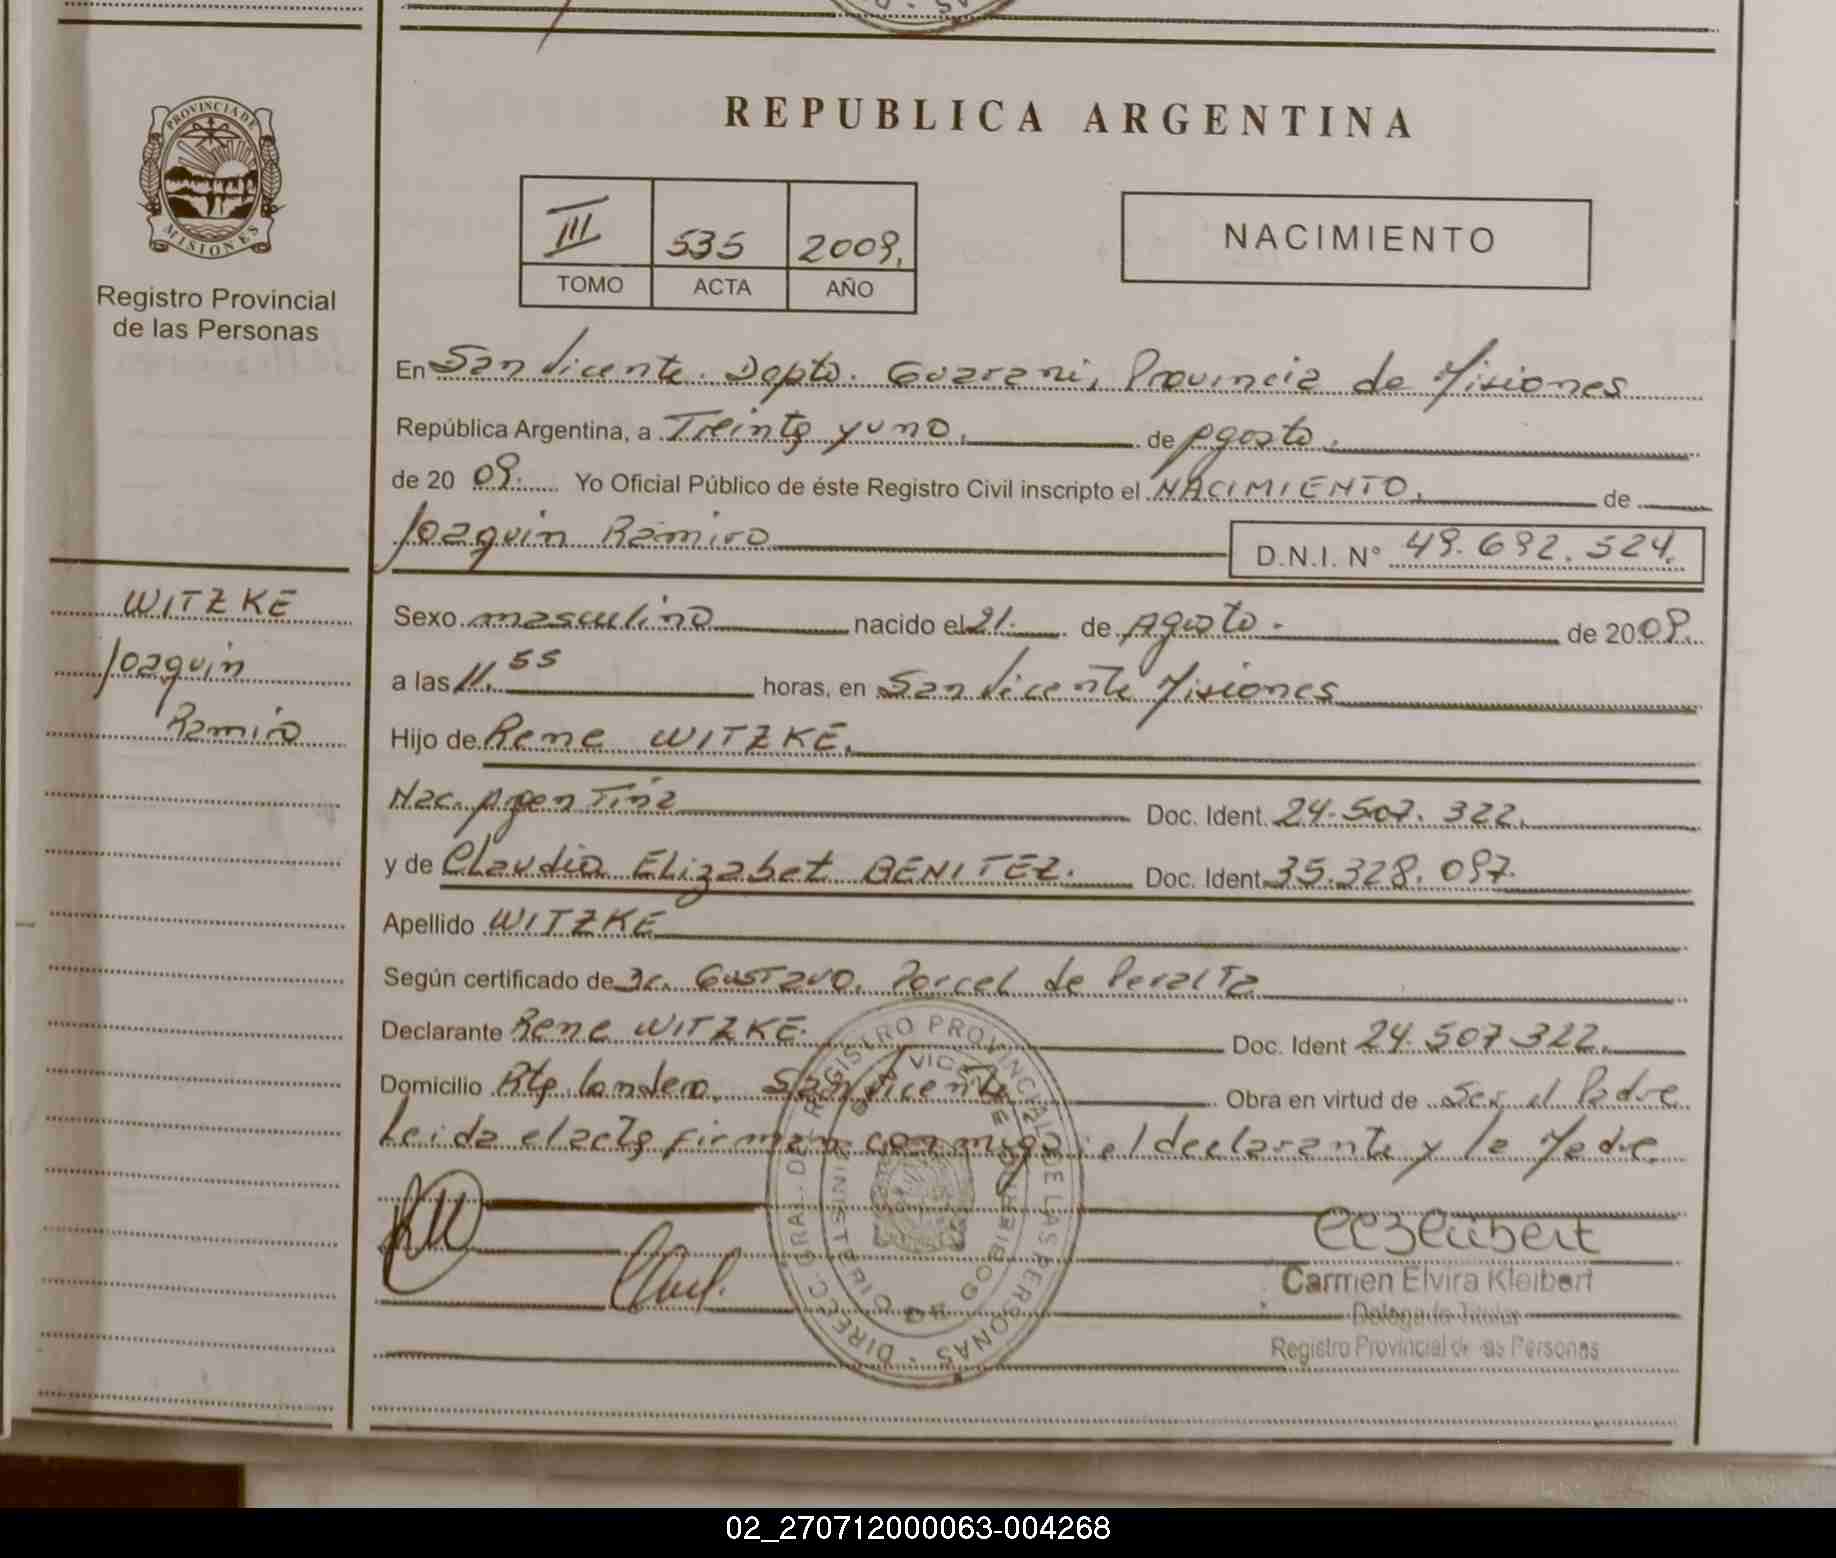 PROVINCIA DE
MISIONES
Registro Provincial
de las Personas
WITZKE
Joaquin
Ramiro
REPUBLICA ARGENTINA
III 535 2009.
TOMO ACTA AÑO
NACIMIENTO
En San Vicente. Depto. Guarani, Provincia de Misiones
República Argentina, a Treinta y uno. de Agosto.
de 20 09. Yo Oficial Público de éste Registro Civil inscripto el NACIMIENTO. de
Joaquin Ramiro D.N.I. N° 49.692.524.
Sexo masculino nacido el 21. de Agosto. de 2009.
a las 11.55 horas, en San Vicente Misiones
Hijo de Rene WITZKE.
Nac. Argentina Doc. Ident. 24.507.322.
y de Claudia Elizabet BENITEZ. Doc. Ident. 35.328.097.
Apellido WITZKE
Según certificado de Dr. Gustavo. Porcel de Peralta
Declarante Rene WITZKE. Doc. Ident 24.507.322.
Domicilio San Vicente Obra en virtud de Ser el Padre
Leida el acta firman conmigo el declarante y la Madre.
DIRECC. GRAL. DE REGISTRO PROVINCIAL DE LAS PERSONAS
MINISTERIO DE GOBIERNO
Carmen Elvira Kleibert
Delegado Titular
Registro Provincial de las Personas
02_270712000063-004268